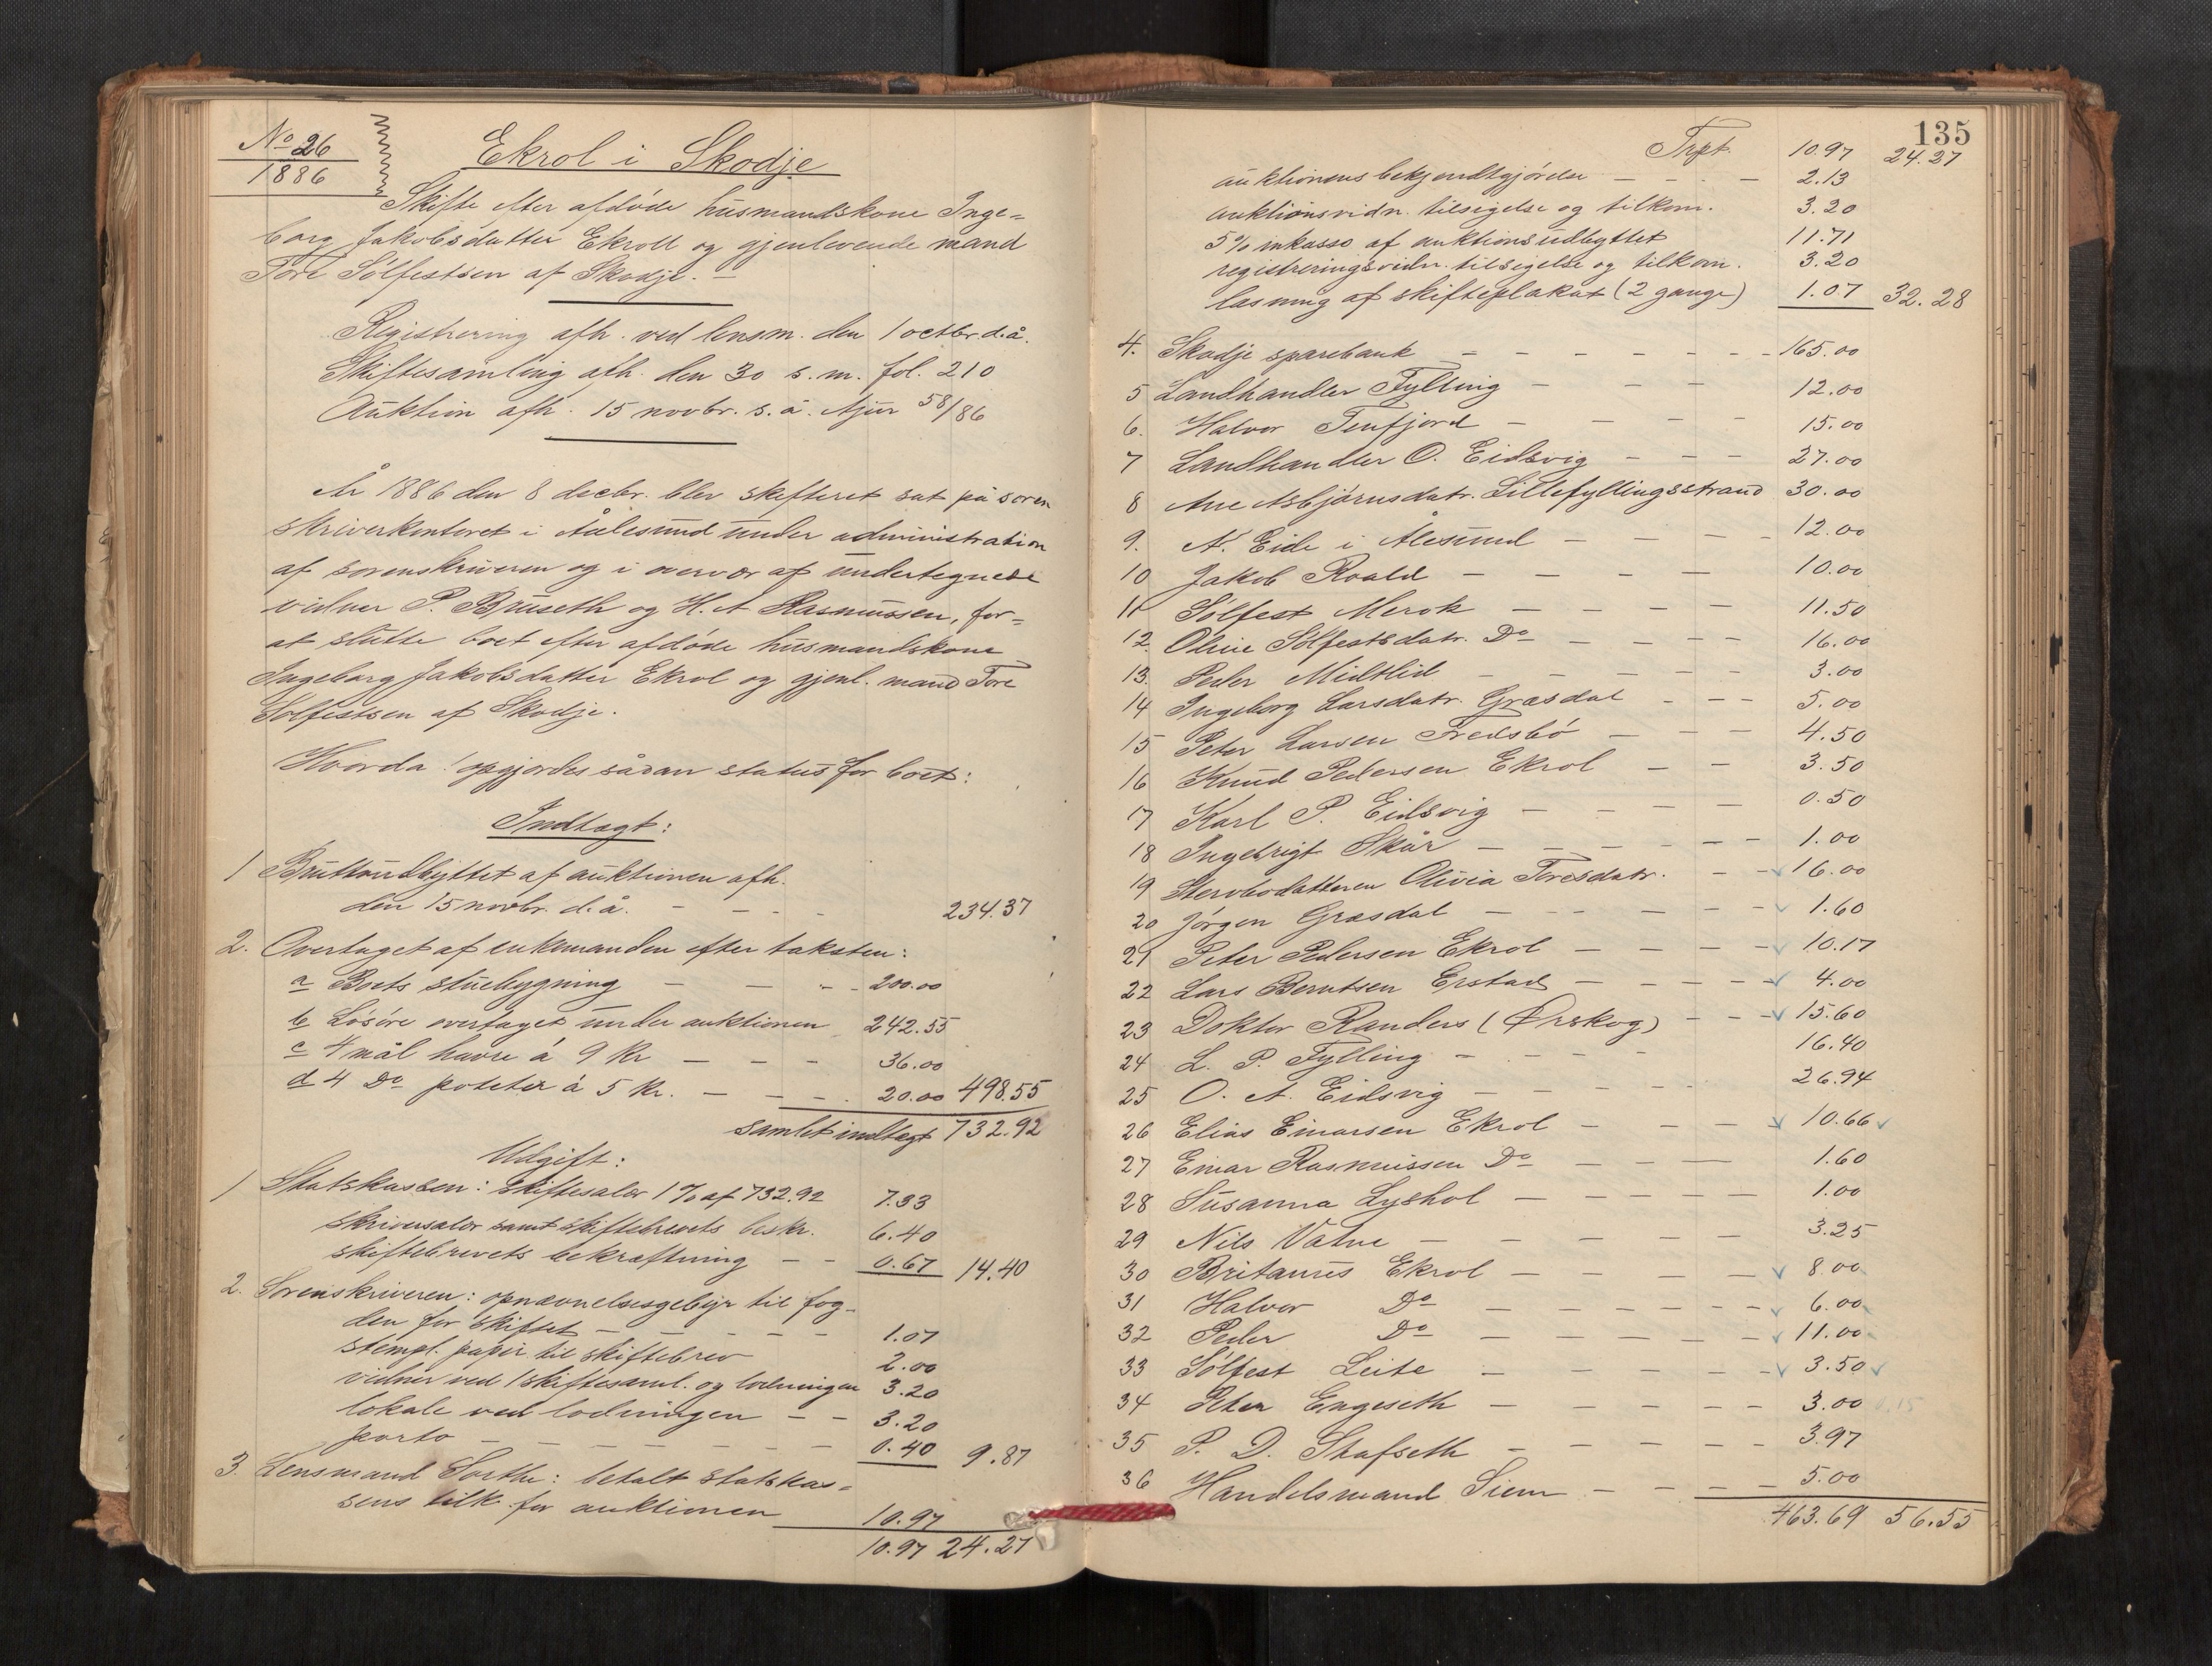 No 26
1886
Ekrol i Skodje
Skifte efter afdøde husmandskone Inge=
borg Jakobsdatter Ekroll og gjenlevende mand
Tore Sølfestsen af Skodje. –
Registrering afh. ved lensm. den 1 octbr. d.å.
Skiftesamling afh. den 30 s.m. fol. 210
Auktion afh. 15 novbr. s.å. Ajour 58/86
År 1886 den 8 decbr. blev skifteret sat på soren
skriverkontoret i Aalesund under administration
af sorenskriveren og i overvær af undertegnede
vidner P. Bruseth og H. A Rasmussen, for=
at slutte boet efter afdøde husmandskone
Ingeborg Jakobsdatter Ekrol og gjenl. mand Tore
Solfestsen af Skodje.
Hvorda! opgjordes sådan status for boet:
Indtægt:
1 Bruttoudbyttet af auktionen afh.
den 15 novbr. d.å. - - - 234.37
2. Overtaget af enkemanden efter taksten:
a Boets stuebygning - - - - 200.00
b Løsøre overtaget under auktionen 242.55
c 4 mål havre á 9 Kr - - - 36.00
d 4 Do poteter á 5 Kr. - - - 20.00 498.55
samlet indtægt 732.92
Udgift:
1 Statskassen: skiftesalær 1 % af 732.92 7.33
skriversalær samt skiftebrevets beskr. 6.40
skiftebrevets bekræftning - - 0.67 14.40
2. Sorenskriveren: opnævnelsesgebyr til fog-
den for skiftet - - - - - 1.07
stempl. papir til skiftebrev 2.00
vidner ved 1 skiftesaml. og lodningen 3.20
lokale ved lodningen - - 3.20
porto - - - - - - 0.40 9.87
3. Lensmand Sorthe: betalt statskas=
sens tilk. for auktionen 10.97
10.97 24.27
135
Trpt. 10.97 24.27
auktionens bekjendtgjørelse - - - - 2.13
auktionsvidn. tilsigelse og tilkom. 3.20
5 % inkasso af auktionsudbyttet 11.71
registreringsvidn. tilsigelse og tilkom. 3.20
læsning af skifteplakat (2 gange) 1.07 32.28
4. Skodje sparebank - - - - - - - 165.00
5 Landhandler Fylling - - - 12.00
6. Halvor Tenfjord - - - - 15.00
7 Landhandler O. Eidsvig - - - 27.00
8 Ane Asbjørnsdatr. Lillefyllingsstrand 30.00
9. N. Eide i Ålesund - - - - 12.00
10 Jakob Roald - - - - 10.00
11 Sølfest Merok - - - - 11.50
12. Oline Sølfestsdatr. Do - - - - 16.00
13. Peder Midtlid - - - - - 3.00
14 Ingeborg Larsdatr. Græsdal - - - 5.00
15 Peter Larsen Fredsbø - - - 4.50
16 Knud Pedersen Ekrol - - 3.50
17 Karl P. Eidsvig - - - - 0.50
18 Ingebrigt Skår - - - - - - 1.00
19 Stervbodatteren Olivia Toresdatr. - - 16.00
20 Jørgen Græsdal - - - - - 1.60
21 Peter Pedersen Ekrol - - - - 10.17
22 Lars Berntsen Erstad - - - - - 4.00
23 Doktor Randers (Ørskog) - - - 15.60
24 L. P. Fylling - - - - 16.40
25 O. A. Eidsvig - - - - 26.94
26 Elias Einarsen Ekrol - - - - 10.66
27 Einar Rasmussen Do - - - 1.60
28 Susanna Lyshol - - - - - 1.00
29 Nils Vatne - - - - - 3.25
30 Britanus Ekrol - - - - - 8.00
31 Halvor Do - - - - - - 6.00
32 Peder Do - - - - - - 11.00
33 Sølfest Leite - - - - - 3.50
34 Peter Engeseth - - - - - 3.00
35 P. D. Stafseth - - - - - 3.97
36 Handelsmand Siem - - - - 5.00
463.69 56.55